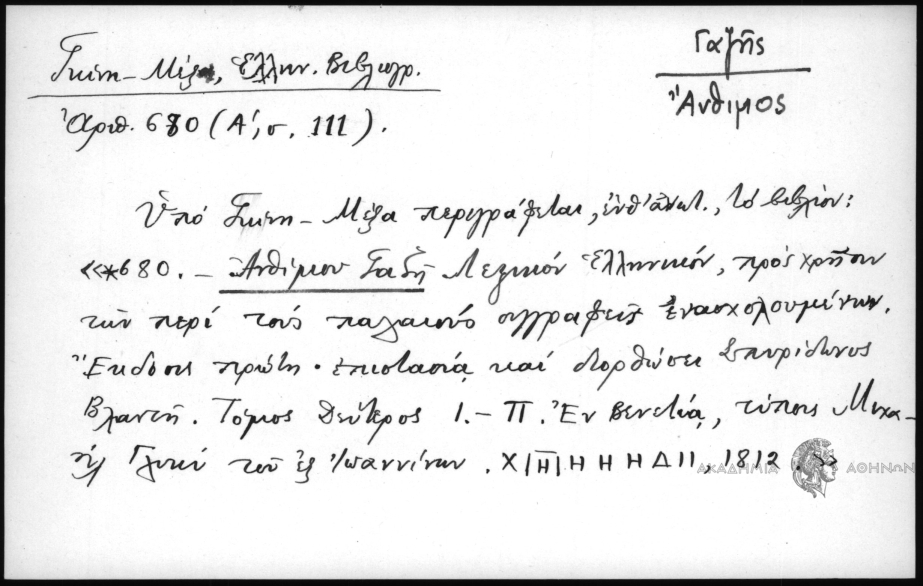 Γκίνη - Μέξα, Ἑλλην. Βιβλιογρ.
Ἀριθ. 680 (Α΄, σ. 111).
Γαζῆς
Ἄνθιμος
Ὑπό Γκίνη - Μέξα περιγράφεται, ἔνθ' ἀνωτ., τό βιβλίον:
«*680. - Ἀνθίμου Γαζῆ Λεξικόν Ἑλληνικόν, πρός χρῆσιν
τῶν περί τούς παλαιούς συγγραφεῖς ἐνασχολουμένων.
Ἔκδοσις πρώτη · ἐπιστασίᾳ καί διορθώσει Σπυρίδωνος
Βλαντῆ. Τόμος δεύτερος Ι. - Π. Ἐν Βενετίᾳ, τύποις Μιχα-
ήλ Γλυκύ τοῦ ἐξ Ἰωαννίνων. Χ|Η|ΗΗΗΔΙΙ, 1812.»
ΑΚΑΔΗΜΙΑ ΑΘΗΝΩΝ